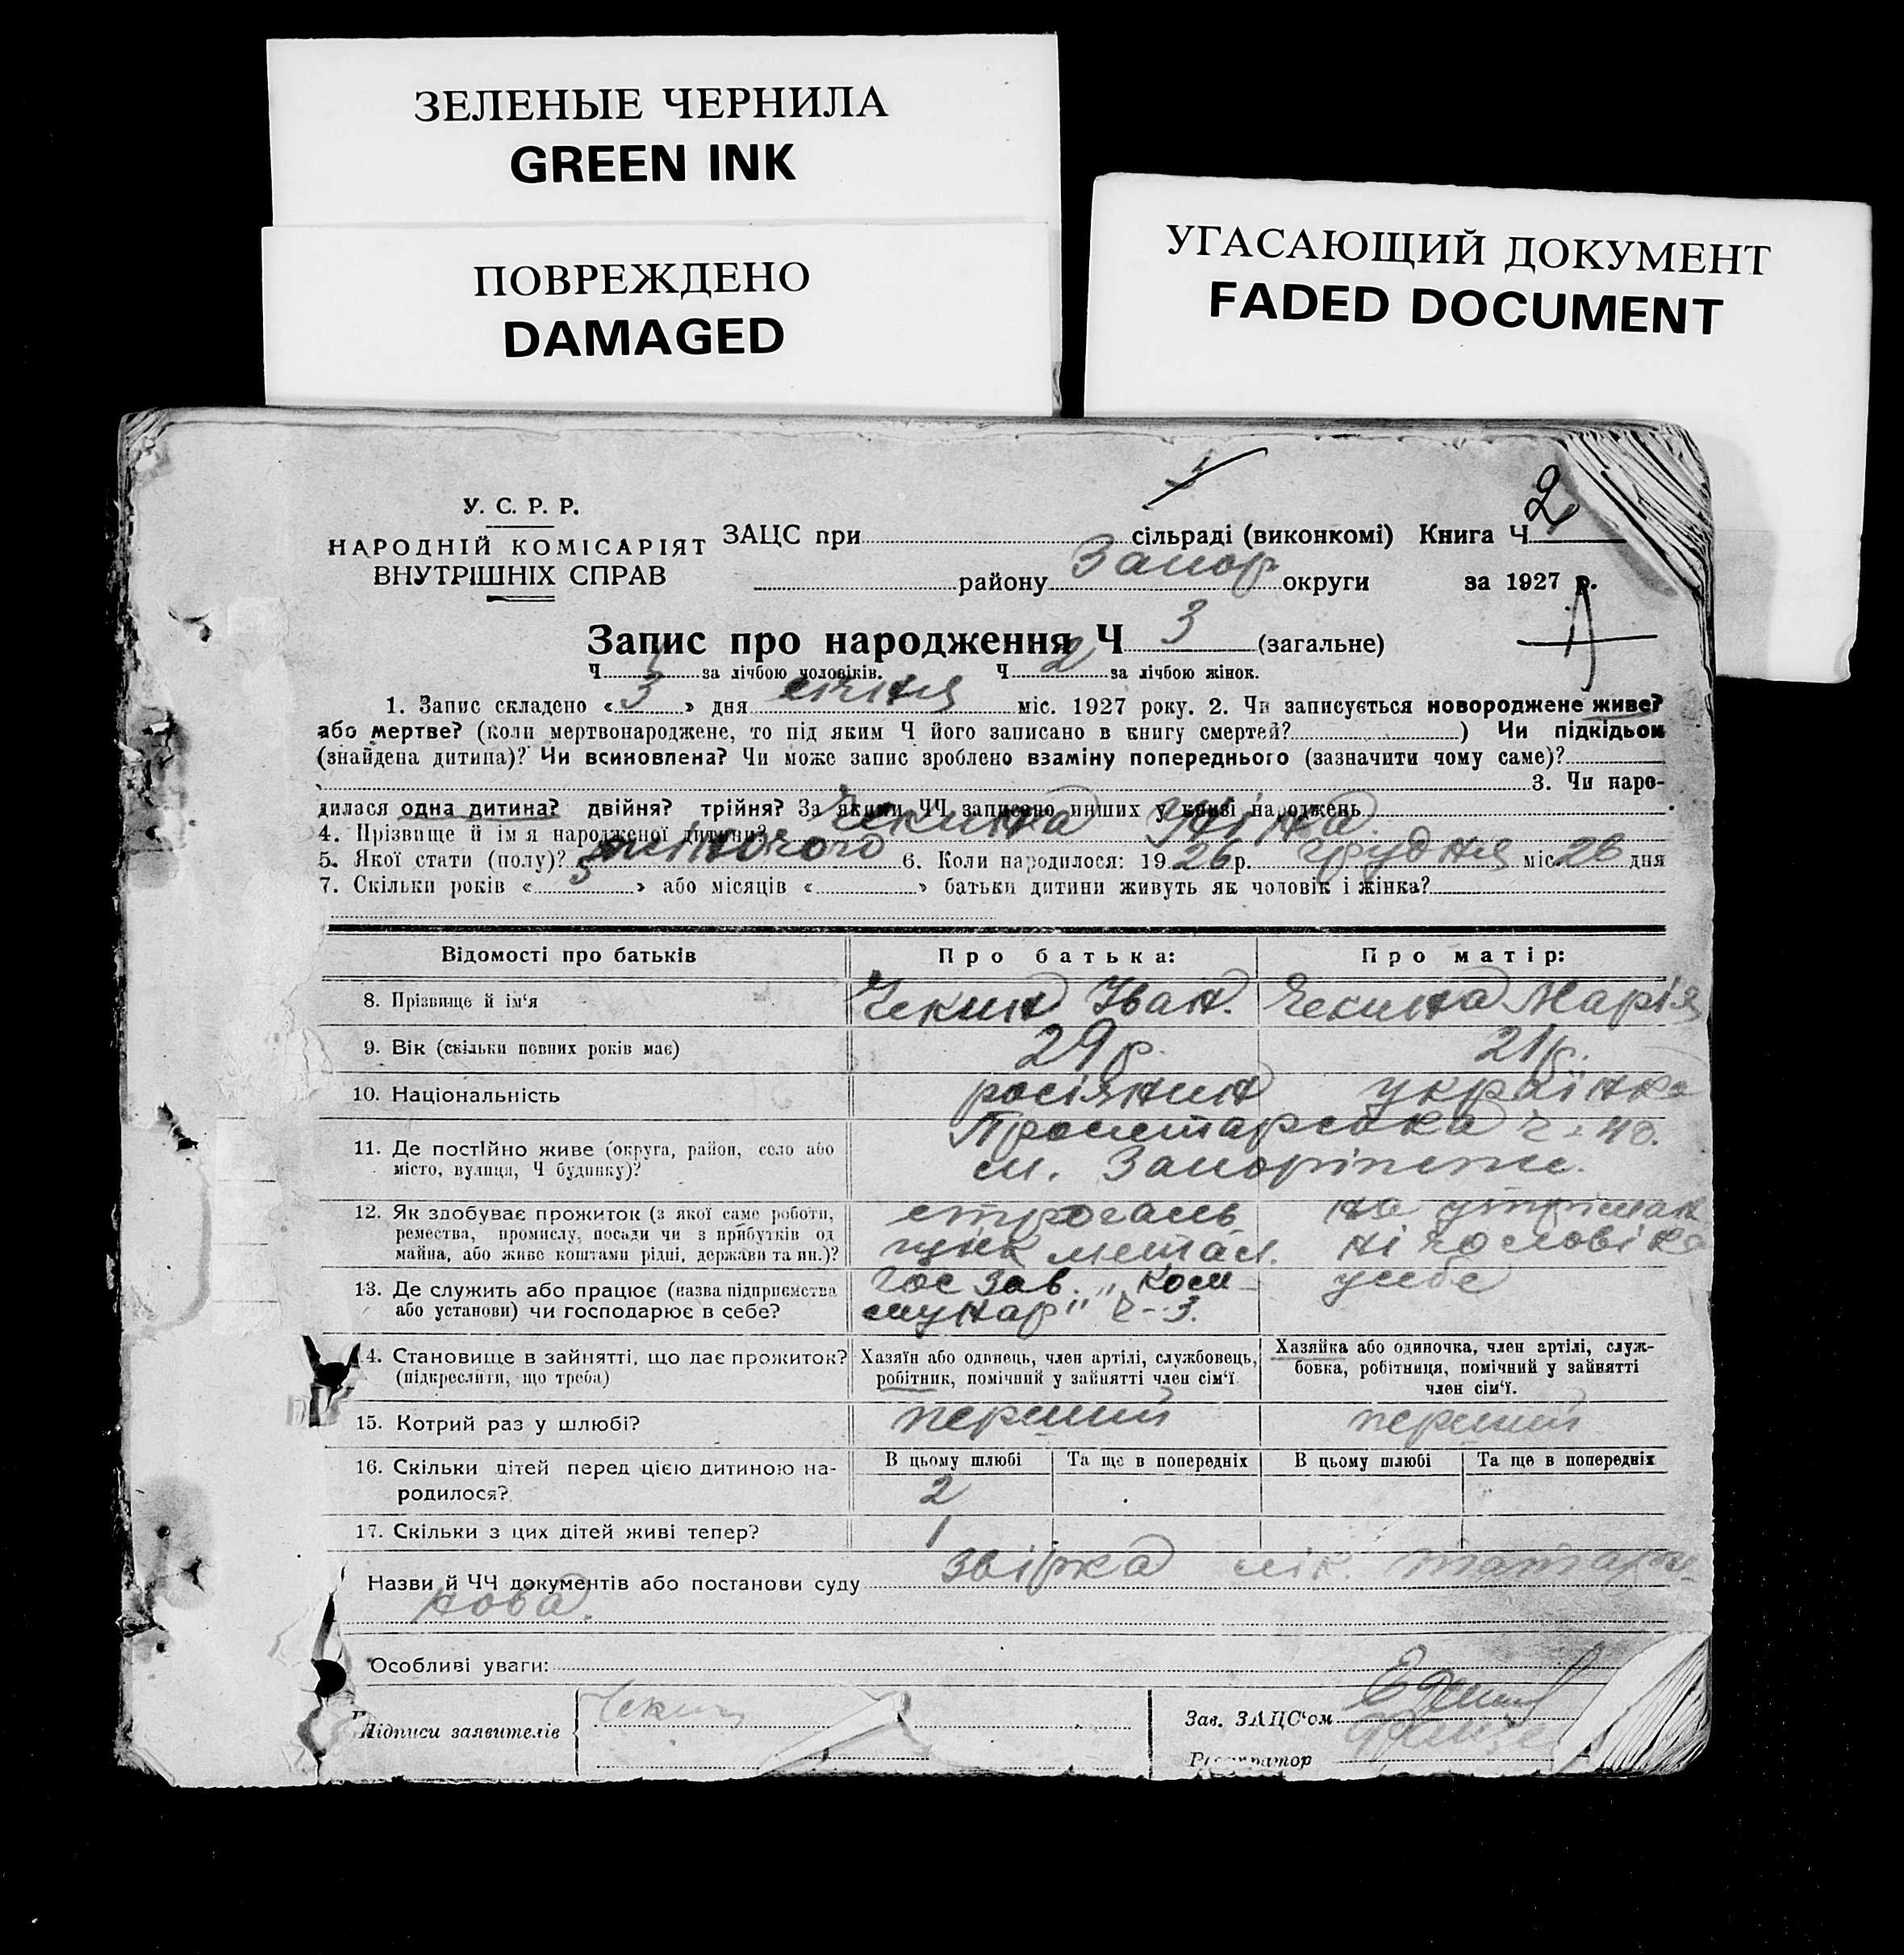 ЗЕЛЕНЫЕ ЧЕРНИЛА
GREEN INK
ПОВРЕЖДЕНО
DAMAGED
УГАСАЮЩИЙ ДОКУМЕНТ
FADED DOCUMENT
У. С. Р. Р.
НАРОДНІЙ КОМІСАРІЯТ
ВНУТРІШНІХ СПРАВ
ЗАЦС при сільраді (виконкомі) Книга Ч 2
району Запор округи за 1927 р.
Запис про народження Ч 3 (загальне)
Ч за лічбою чоловіків. Ч 2 за лічбою жінок.
1. Запис складено « 3 » дня січня міс. 1927 року. 2. Чи записується новороджене живе?
або мертве? (коли мертвонароджене, то під яким Ч його записано в книгу смертей? ) Чи підкідьок
(знайдена дитина)? Чи всиновлена? Чи може запис зроблено взаміну попереднього (зазначити чому саме)?
3. Чи наро-
дилася одна дитина? двійня? трійня? За якими ЧЧ записано инших у книзі народжень
4. Прізвище й ім я народженої дитини? Чекина
5. Якої стати (полу)? жіночого 6. Коли народилося: 19 26 р. грудня міс. 26 дня
7. Скільки років « 5 » або місяців « » батьки дитини живуть як чоловік і жінка?
Відомості про батьків Про батька: Про матір:
8. Прізвище й ім'я Чекин Іван. Чекина Марія
9. Вік (скільки повних років має) 29 р. 21 р.
10. Національність росіянин українка
11. Де постійно живе (округа, район, село або
місто, вулиця, Ч будинку)?
Пролетарська ч-40.
м. Запоріжже.
12. Як здобуває прожиток (з якої саме роботи,
ремества, промислу, посади чи з прибутків од
майна, або живе коштами рідні, держави та ин.)?
строгаль
метал.
на утриман
ні чоловіка
13. Де служить або працює (назва підприємства
або установи) чи господарює в себе?
Гос зав. „Ком-
мунар" ч-3.
у себе
14. Становище в зайнятті, що дає прожиток?
(підкреслити, що треба)
Хазяїн або одинець, член артілі, службовець,
робітник, помічний у зайнятті член сім'ї.
Хазяйка або одиночка, член артілі, служ-
бовка, робітниця, помічний у зайнятті
член сім'ї.
15. Котрий раз у шлюбі? перший перший
16. Скільки дітей перед цією дитиною на-
родилося?
В цьому шлюбі Та ще в попередніх В цьому шлюбі Та ще в попередніх
2
17. Скільки з цих дітей живі тепер? 1
Назви й ЧЧ документів або постанови суду звірка лік. Татари-
нова.
Особливі уваги:
Підписи заявителів Чекин
Зав. ЗАЦС'ом
Реєстратор